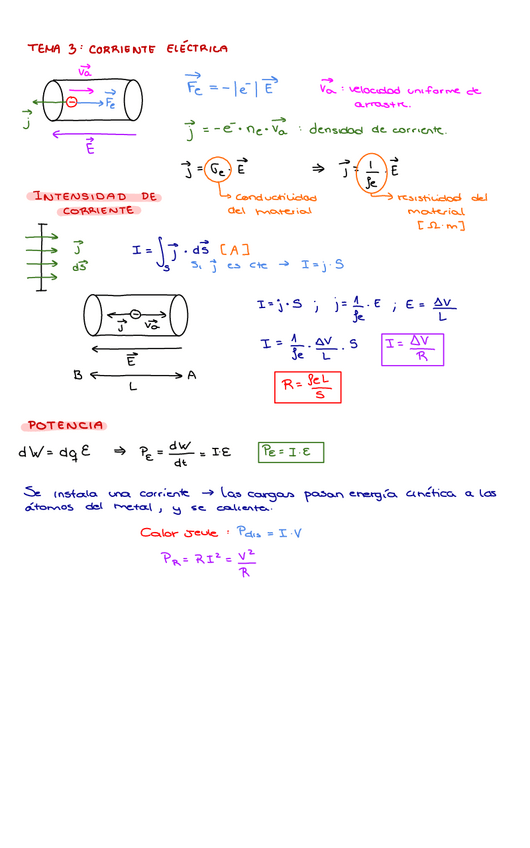 TEMA 3: CORRIENTE ELÉCTRICA
v⃗a
F⃗e
j⃗
E⃗
F⃗e = -|e⁻| E⃗
v⃗a : velocidad uniforme de arrastre.
j⃗ = -e⁻ · ne · v⃗a : densidad de corriente.
j⃗ = σe · E⃗ ⇒ j⃗ = 1/ρe · E⃗
conductividad del material
resistividad del material
[Ω·m]
INTENSIDAD DE
CORRIENTE
j⃗
dS⃗
I = ∫S j⃗ · dS⃗ [A]
Si j⃗ es cte → I = j·S
j⃗ v⃗a
E⃗
B A
L
I = j·S ; j = 1/ρe · E ; E = ΔV/L
I = 1/ρe · ΔV/L · S
I = ΔV/R
R = ρeL/S
POTENCIA
dW = dq ε ⇒ Pε = dW/dt = I·ε
Pε = I·ε
Se instala una corriente → las cargas pasan energía cinética a los
átomos del metal, y se calienta.
Calor Jeule : Pdis = I·V
PR = RI² = V²/R